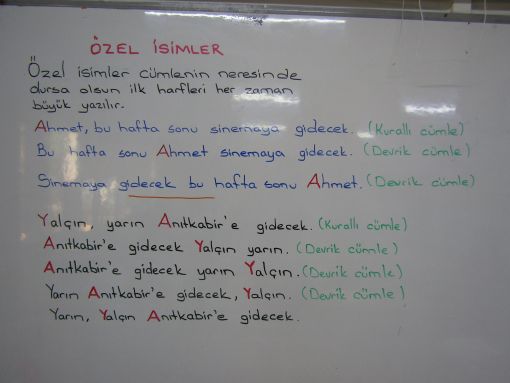 ÖZEL İSİMLER
Özel isimler cümlenin neresinde
dursa olsun ilk harfleri her zaman
büyük yazılır.
Ahmet, bu hafta sonu sinemaya gidecek. (Kurallı cümle)
Bu hafta sonu Ahmet sinemaya gidecek. (Devrik cümle)
Sinemaya gidecek bu hafta sonu Ahmet. (Devrik cümle)
Yalçın, yarın Anıtkabir'e gidecek. (Kurallı cümle)
Anıtkabir'e gidecek Yalçın yarın. (Devrik cümle)
Anıtkabir'e gidecek yarın Yalçın. (Devrik cümle)
Yarın Anıtkabir'e gidecek, Yalçın. (Devrik cümle)
Yarın, Yalçın Anıtkabir'e gidecek.